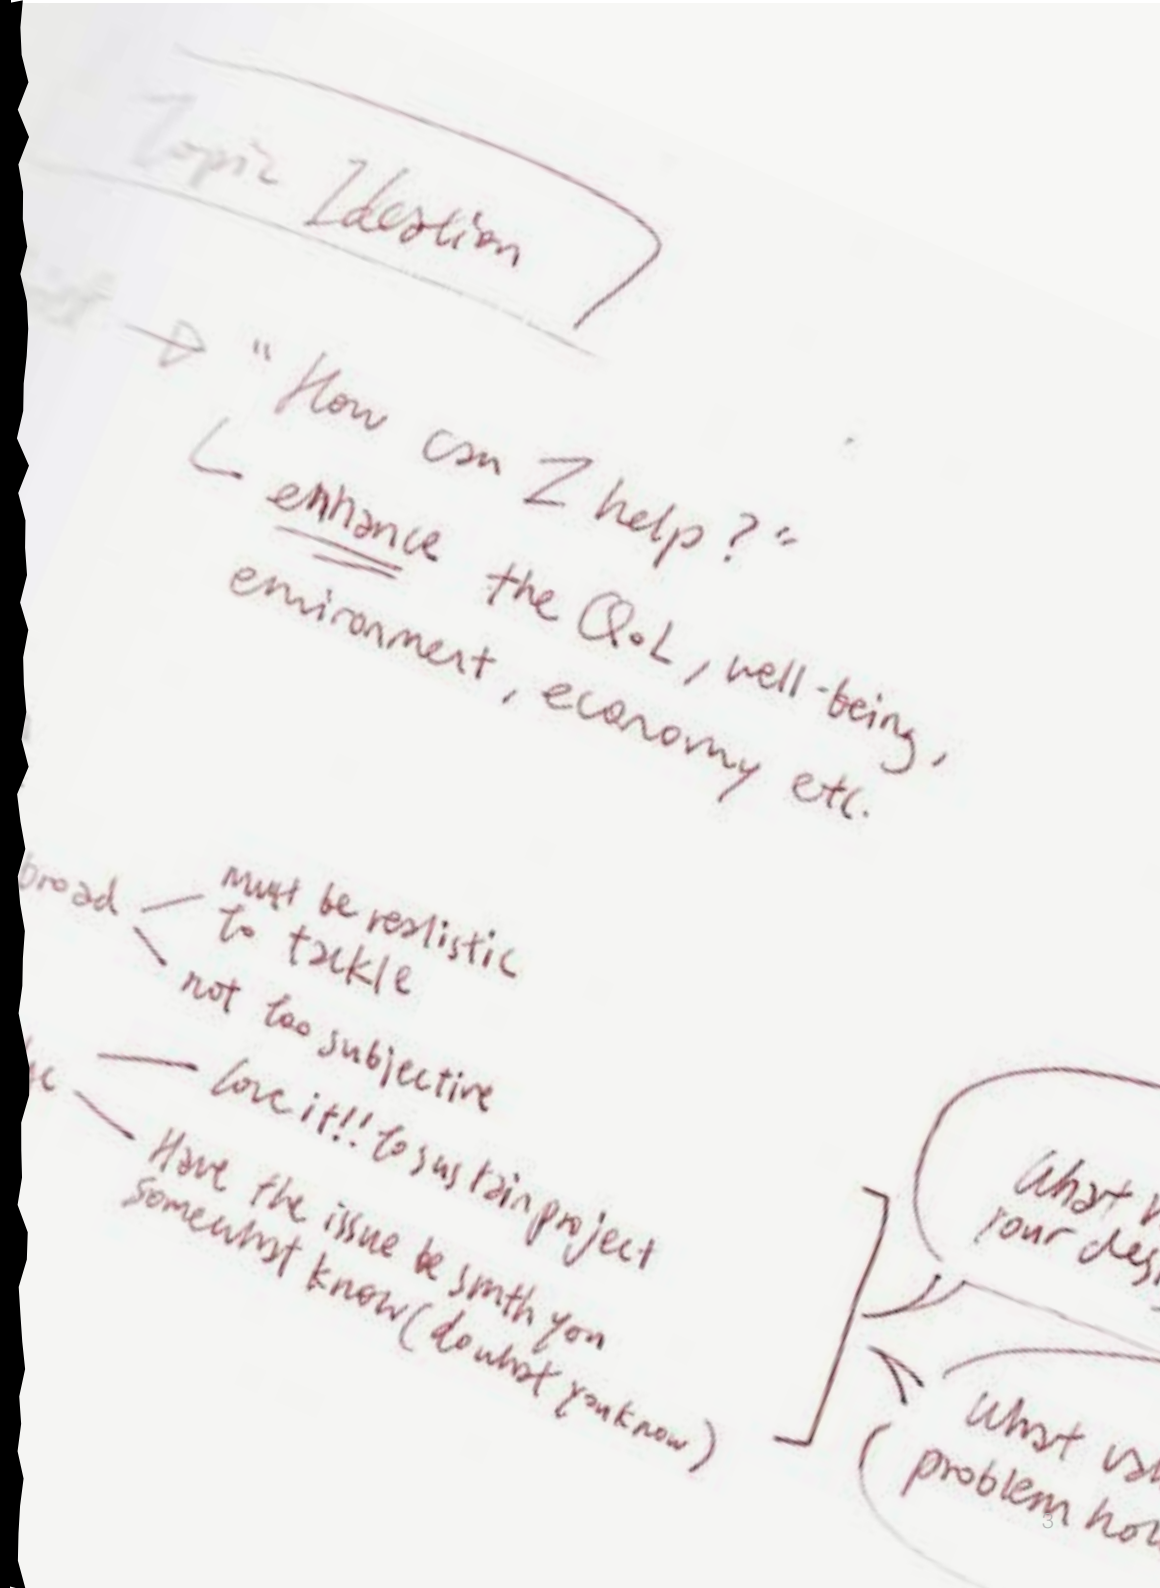 Topic Ideation
"How can I help?"
enhance the QoL, well-being,
environment, economy etc.
broad
must be realistic
to tackle
not too subjective
Love it!! to sustain project
Have the issue be smth you
somewhat know (do what you know)
What
your
What
problem
3